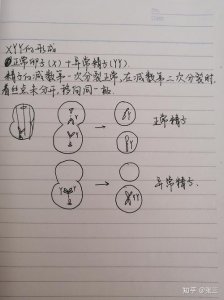 XYY的形成
①正常卵子(X)+异常精子(YY).
精子的减数第一次分裂正常,在减数第二次分裂时
着丝点未分开,移向同一极.
正常精子
异常精子.
知乎 @张三